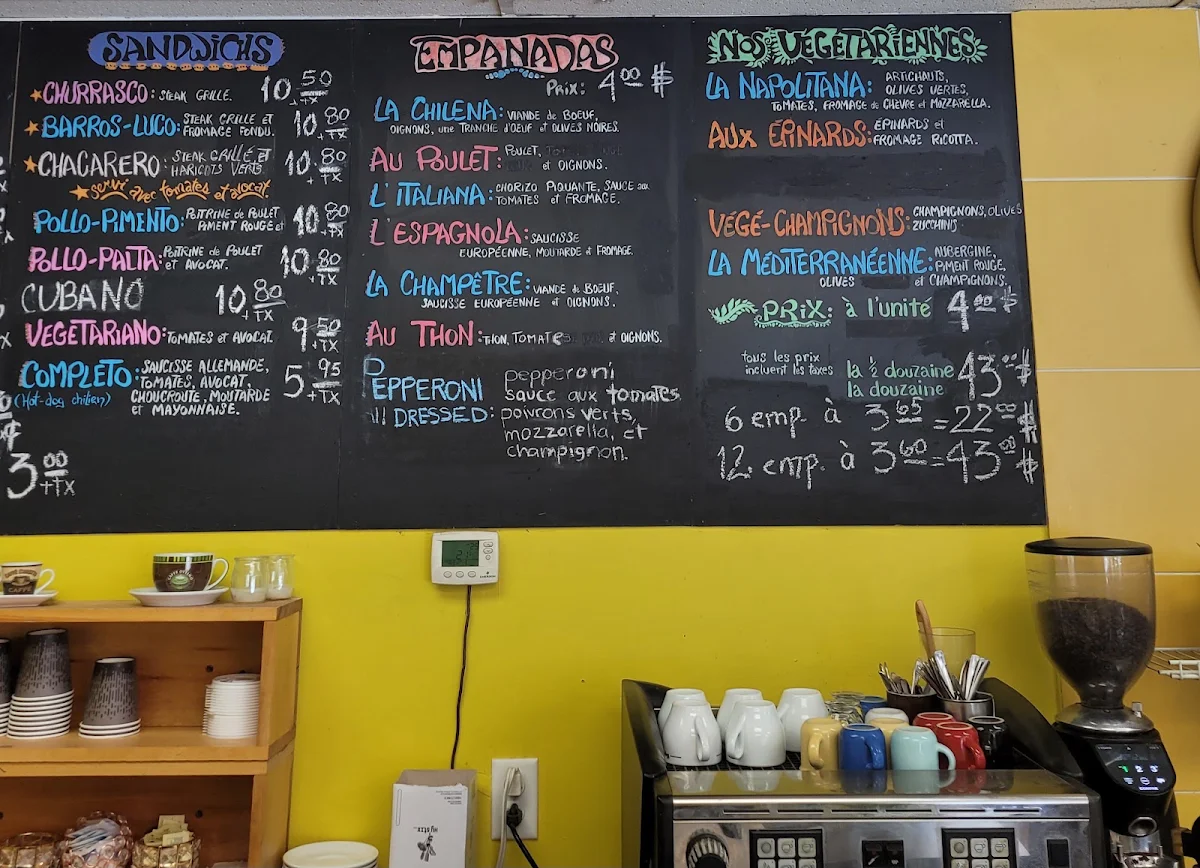 SANDWICHS
CHURRASCO: STEAK GRILLÉ. 10.50 +TX
BARROS-LUCO: STEAK GRILLÉ et FROMAGE FONDU. 10.80 +TX
CHACARERO: STEAK GRILLÉ ET HARICOTS VERTS. 10.80 +TX
servi avec tomates et avocat
POLLO-PIMENTO: POITRINE de POULET et PIMENT ROUGE 10.80 +TX
POLLO-PALTA: POITRINE de POULET et AVOCAT. 10.80 +TX
CUBANO 10.80 +TX
VEGETARIANO: TOMATES et AVOCAT. 9.50 +TX
COMPLETO: SAUCISSE ALLEMANDE,
(Hot-dog chilien) TOMATES, AVOCAT,
CHOUCROUTE, MOUTARDE
et MAYONNAISE. 5.95 +TX
3.00 +TX
EMPANADAS
PRIX: 4.00 $
LA CHILENA: VIANDE de BOEUF,
OIGNONS, une TRANCHE d'OEUF et OLIVES NOIRES.
AU POULET: POULET,
et OIGNONS.
L'ITALIANA: CHORIZO PIQUANTE, SAUCE aux
TOMATES et FROMAGE.
L'ESPAGNOLA: SAUCISSE
EUROPÉENNE, MOUTARDE et FROMAGE.
LA CHAMPÊTRE: VIANDE de BOEUF,
SAUCISSE EUROPÉENNE et OIGNONS.
AU THON: THON, TOMATE et OIGNONS.
PEPPERONI
All DRESSED:
pepperoni
sauce aux tomates
poivrons verts,
mozzarella, et
champignon.
NOS VEGETARIENNES
LA NAPOLITANA: ARTICHAUTS,
OLIVES VERTES,
TOMATES, FROMAGE de CHÈVRE et MOZZARELLA.
AUX ÉPINARDS: ÉPINARDS et
FROMAGE RICOTTA.
VÉGÉ-CHAMPIGNONS: CHAMPIGNONS, OLIVES
ZUCCHINIS
LA MÉDITERRANÉENNE: AUBERGINE,
PIMENT ROUGE,
OLIVES et CHAMPIGNONS.
PRIX: à l'unité 4.00 $
tous les prix
incluent les taxes
la ½ douzaine
la douzaine 43.00 $
6 emp. à 3.65 = 22.00 $
12 emp. à 3.60 = 43.00 $